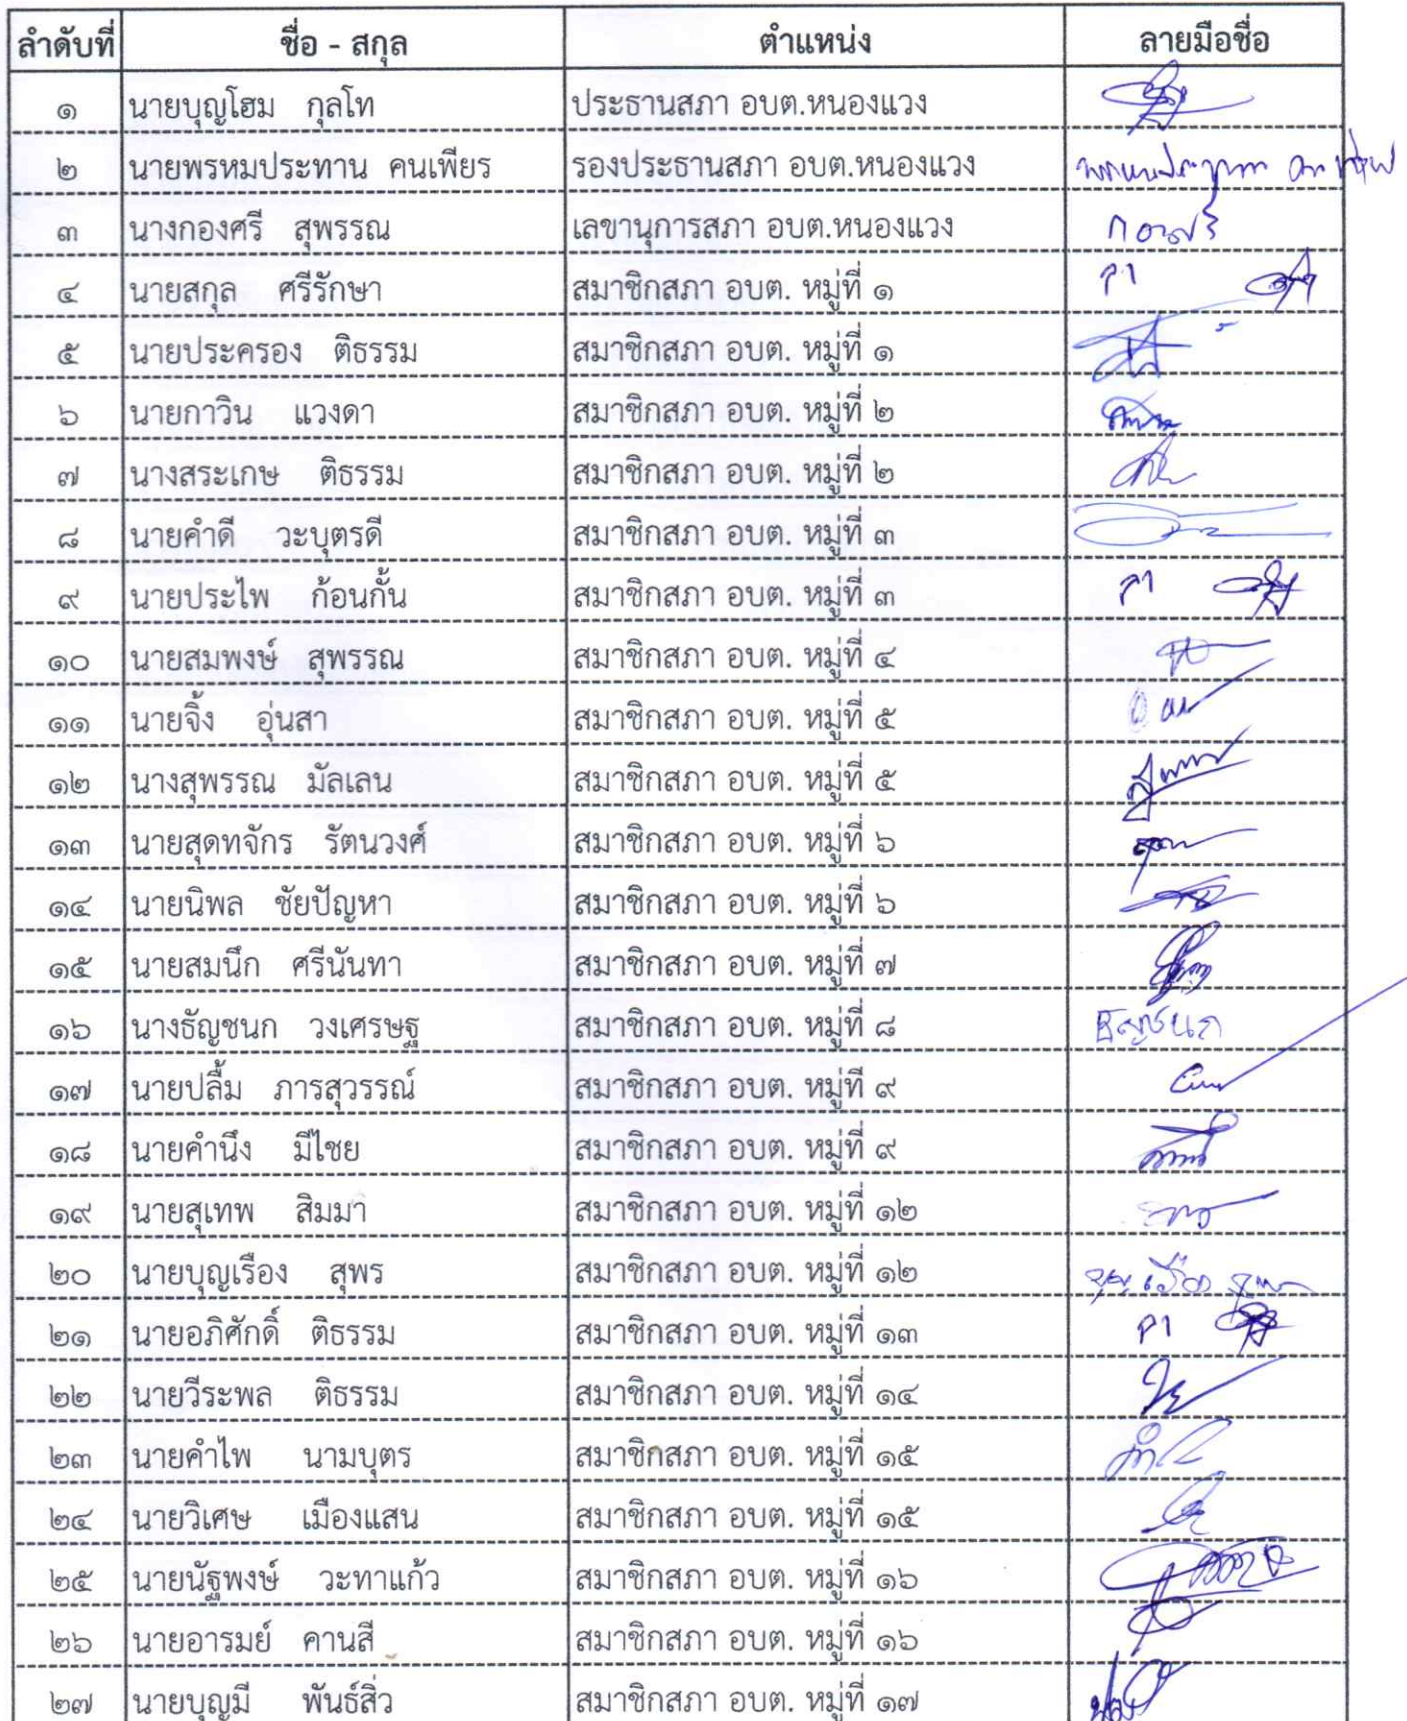 ลำดับที่ ชื่อ - สกุล ตำแหน่ง ลายมือชื่อ
๑ นายบุญโฮม กุลโท ประธานสภา อบต.หนองแวง
๒ นายพรหมประทาน คนเพียร รองประธานสภา อบต.หนองแวง
๓ นางกองศรี สุพรรณ เลขานุการสภา อบต.หนองแวง กองศรี
๔ นายสกุล ศรีรักษา สมาชิกสภา อบต. หมู่ที่ ๑ ลา
๕ นายประครอง ติธรรม สมาชิกสภา อบต. หมู่ที่ ๑
๖ นายกาวิน แวงดา สมาชิกสภา อบต. หมู่ที่ ๒
๗ นางสระเกษ ติธรรม สมาชิกสภา อบต. หมู่ที่ ๒
๘ นายคำดี วะบุตรดี สมาชิกสภา อบต. หมู่ที่ ๓
๙ นายประไพ ก้อนกั้น สมาชิกสภา อบต. หมู่ที่ ๓ ลา
๑๐ นายสมพงษ์ สุพรรณ สมาชิกสภา อบต. หมู่ที่ ๔
๑๑ นายจิ้ง อุ่นสา สมาชิกสภา อบต. หมู่ที่ ๕
๑๒ นางสุพรรณ มัลเลน สมาชิกสภา อบต. หมู่ที่ ๕
๑๓ นายสุดทจักร รัตนวงศ์ สมาชิกสภา อบต. หมู่ที่ ๖
๑๔ นายนิพล ชัยปัญหา สมาชิกสภา อบต. หมู่ที่ ๖
๑๕ นายสมนึก ศรีนันทา สมาชิกสภา อบต. หมู่ที่ ๗
๑๖ นางธัญชนก วงเศรษฐ สมาชิกสภา อบต. หมู่ที่ ๘ ธัญชนก
๑๗ นายปลื้ม ภารสุวรรณ์ สมาชิกสภา อบต. หมู่ที ๙
๑๘ นายคำนึง มีไชย สมาชิกสภา อบต. หมู่ที่ ๙
๑๙ นายสุเทพ สิมมา สมาชิกสภา อบต. หมู่ที่ ๑๒
๒๐ นายบุญเรือง สุพร สมาชิกสภา อบต. หมู่ที่ ๑๒ บุญเรือง
๒๑ นายอภิศักดิ์ ติธรรม สมาชิกสภา อบต. หมู่ที่ ๑๓ ลา
๒๒ นายวีระพล ติธรรม สมาชิกสภา อบต. หมู่ที่ ๑๔
๒๓ นายคำไพ นามบุตร สมาชิกสภา อบต. หมู่ที่ ๑๕
๒๔ นายวิเศษ เมืองแสน สมาชิกสภา อบต. หมู่ที่ ๑๕
๒๕ นายนัฐพงษ์ วะทาแก้ว สมาชิกสภา อบต. หมู่ที่ ๑๖
๒๖ นายอารมย์ คานสี สมาชิกสภา อบต. หมู่ที่ ๑๖
๒๗ นายบุญมี พันธ์สิ่ว สมาชิกสภา อบต. หมู่ที่ ๑๗